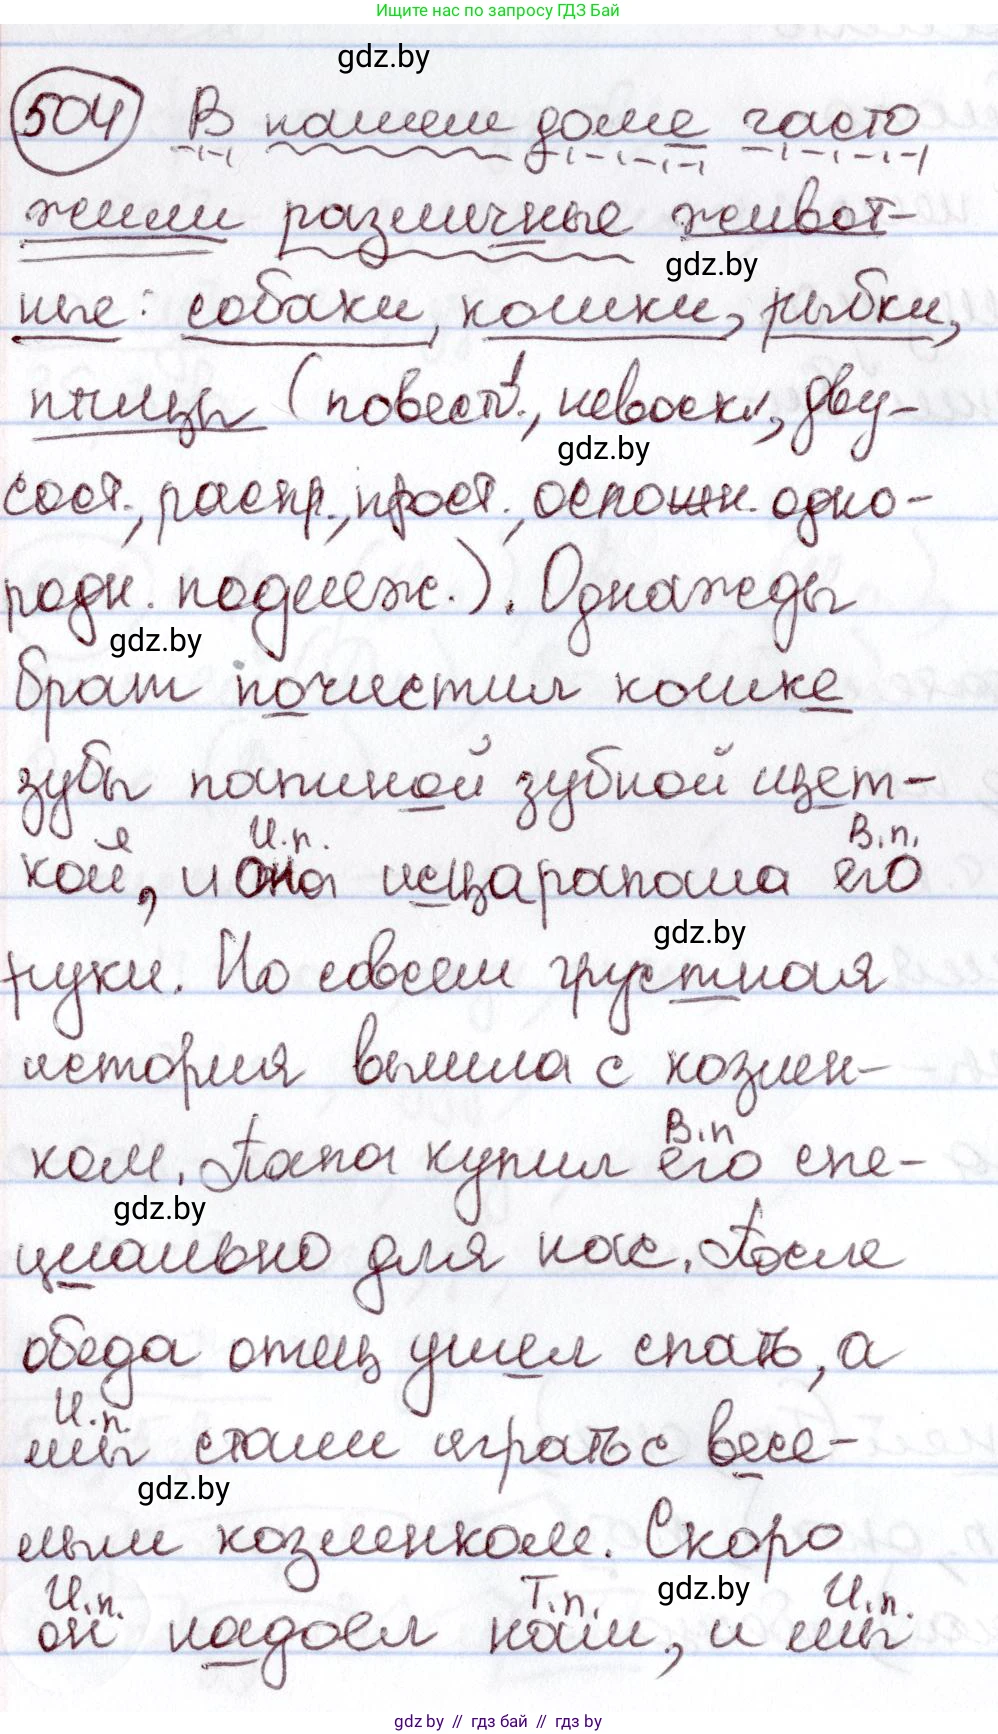 Ищите нас по запросу ГДЗ Бай
gdz.by
504 В нашем доме часто
жили различные живот-
gdz.by
ные: собаки, кошки, рыбки,
птицы (повеств., невоскл., дву-
gdz.by
сост., распр., прост., осложн. одно-
родн. подлеж.). Однажды
gdz.by
брат почистил кошке
зубы папиной зубной щет-
И.п. В.п.
кой, и она исцарапала его
gdz.by
руки. Но совсем грустная
история вышла с козлен-
В.п
ком. Папа купил его спе-
gdz.by
циально для нас. После
обеда отец ушел спать, а
И.п.
мы стали играть с весе-
gdz.by
лым козленком. Скоро
И.п. Т.п. gdz.by И.п.
он надоел нам, и мы
gdz.by // гдз бай // гдз by